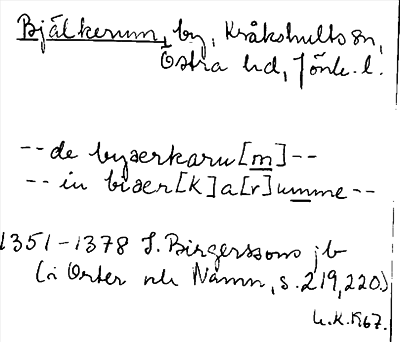 Bjälkerum, by, Kråkshults sn,
Östra hd, Jönk. l.
-- de byærkaru[m] --
-- in biær[k]a[r]umme --
1351-1378 S. Birgerssons jb
(i Orter och Namn, s. 219, 220.)
h.k. 1967.